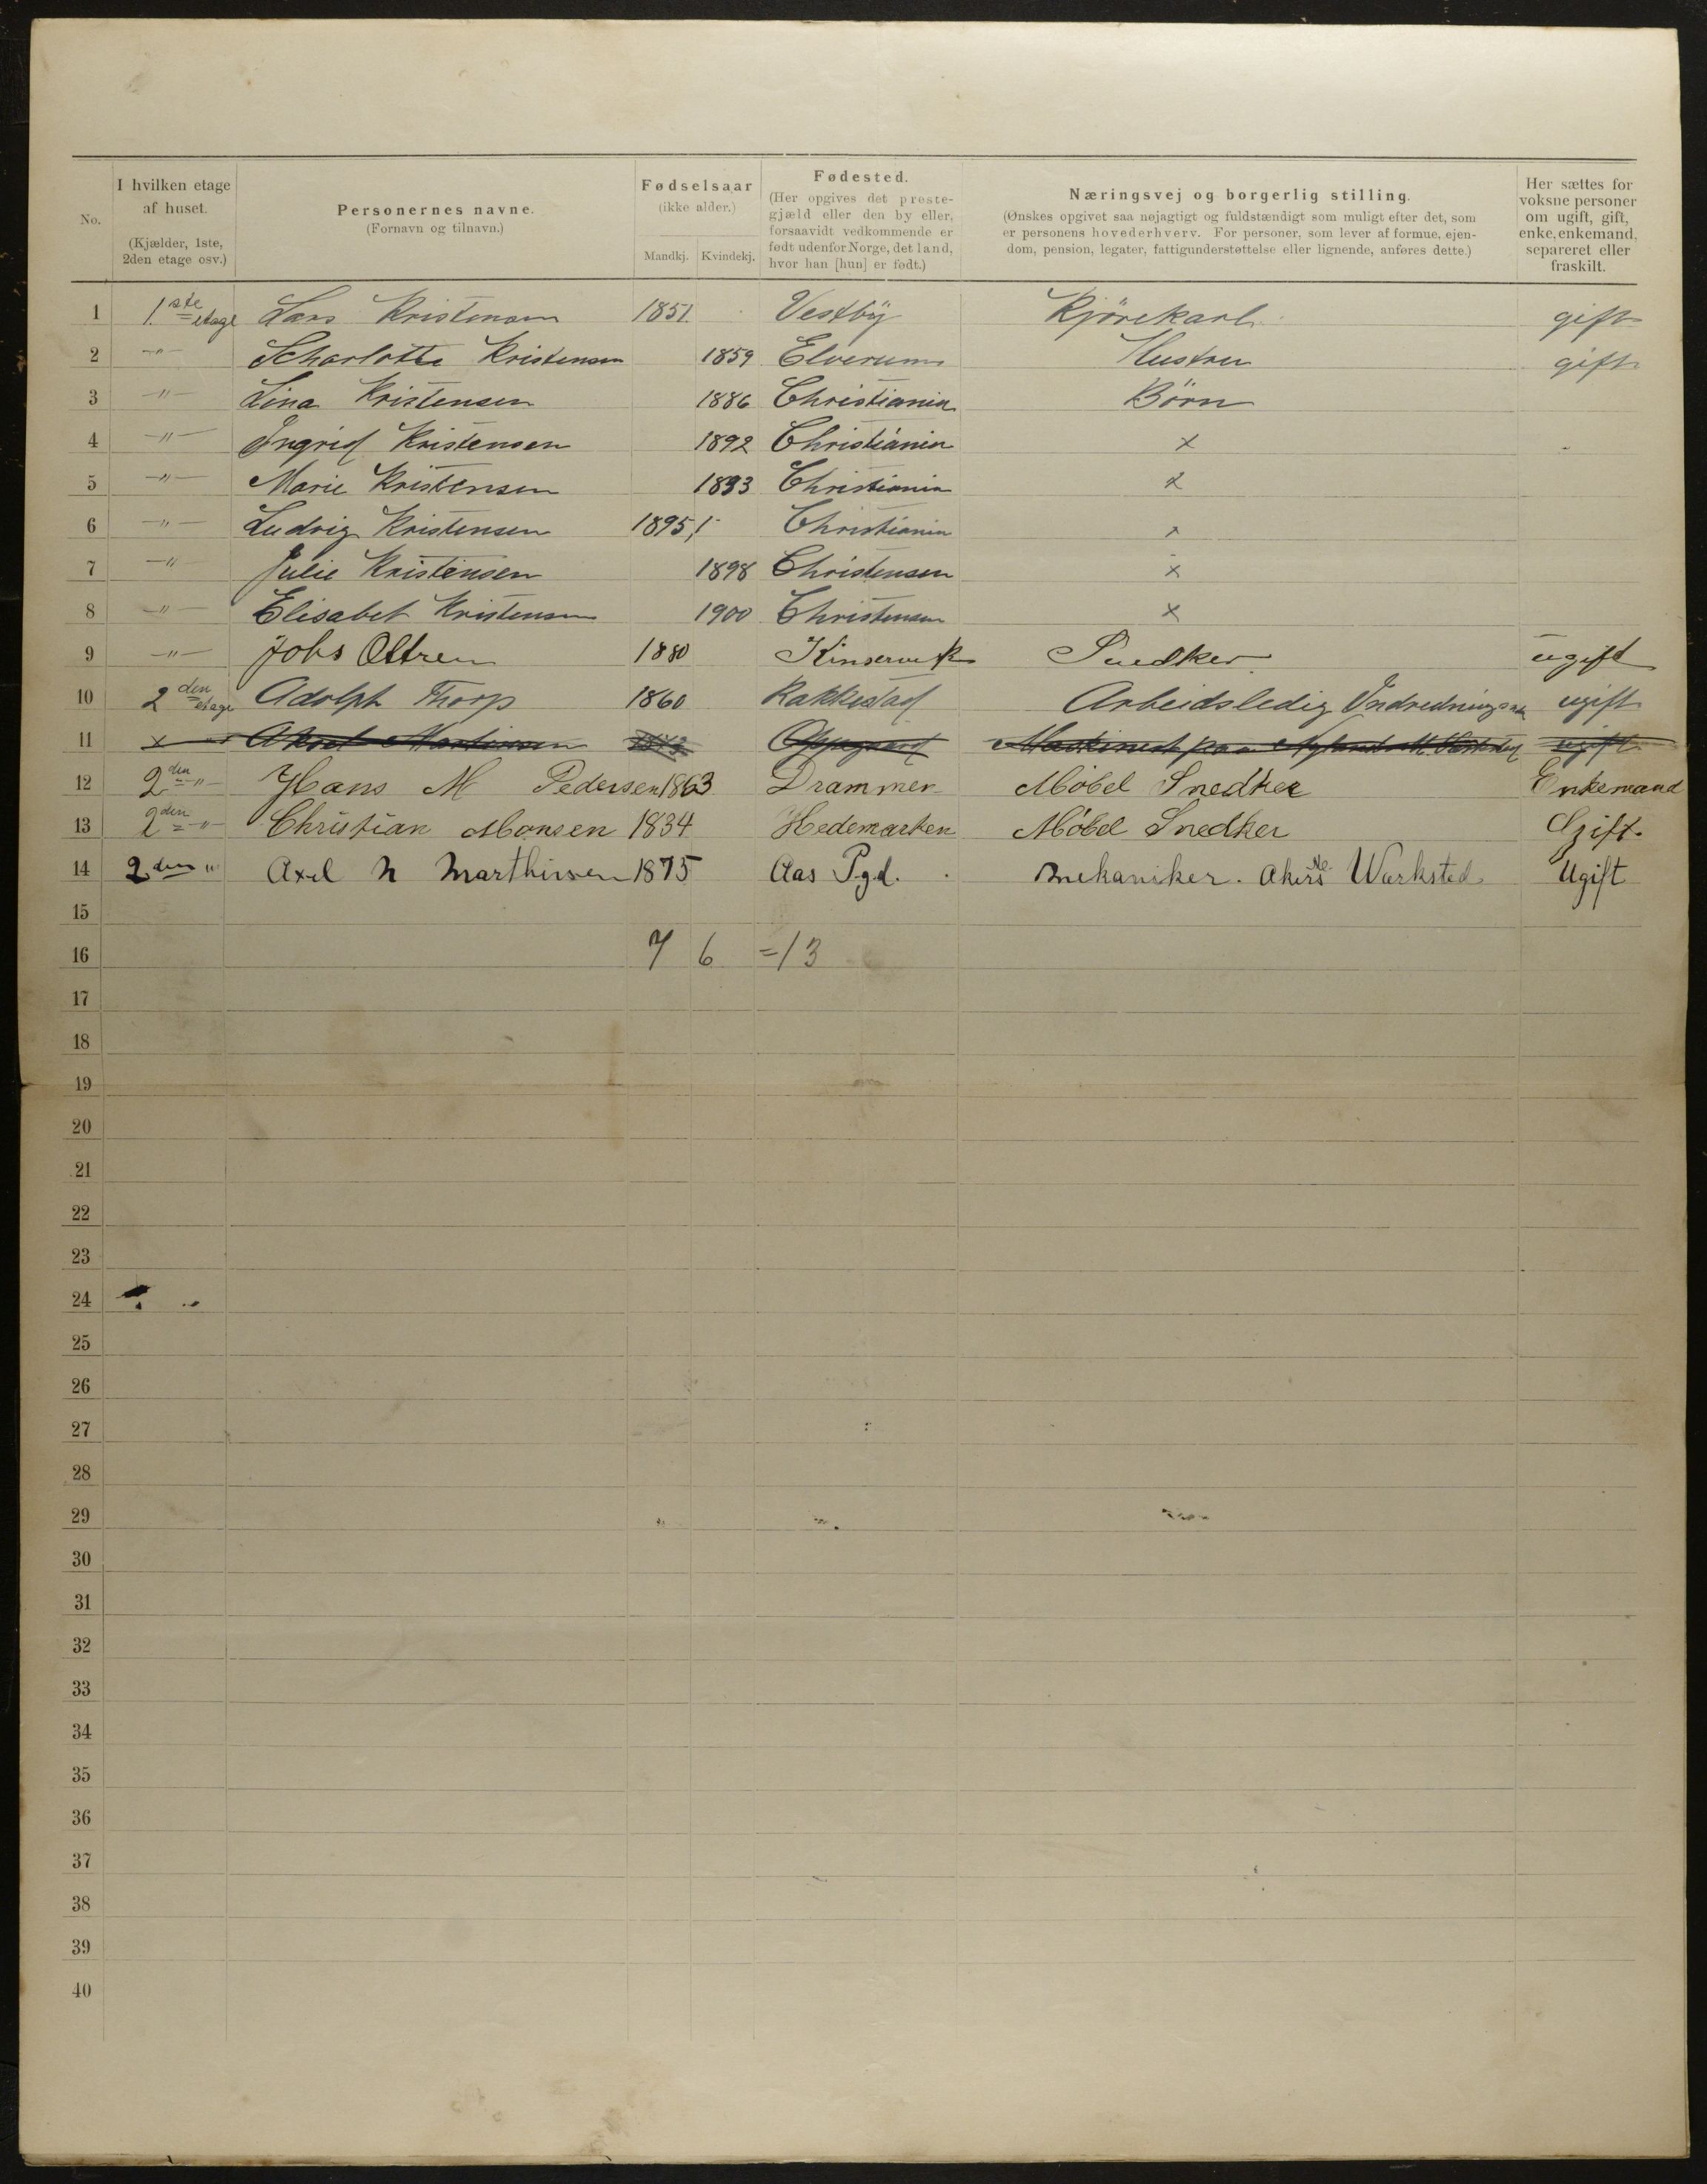 No.
I hvilken etage af huset.
(Kjælder, 1ste, 2den etage osv.)
Personernes navne.
(Fornavn og tilnavn.)
Fødselsaar
(ikke alder.)
Mandkj. Kvindekj.
Fødested.
(Her opgives det præste-
gjæld eller den by eller,
forsaavidt vedkommende er
født udenfor Norge, det land,
hvor han [hun] er født.)
Næringsvej og borgerlig stilling.
(Ønskes opgivet saa nøjagtigt og fuldstændigt som muligt efter det, som
er personens hovederhverv. For personer, som lever af formue, ejen-
dom, pension, legater, fattigunderstøttelse eller lignende, anføres dette.)
Her sættes for
voksne personer
om ugift, gift,
enke, enkemand,
separeret eller
fraskilt.
1 1.ste etage Lars Kristensen 1851 Vestby Kjörekarl gift
2 -"- Scharlotte Kristensen 1859 Elverum Hustru gift
3 -"- Lina Kristensen 1886 Christiania Börn
4 -"- Ingrid Kristensen 1892 Christiania x
5 -"- Marie Kristensen 1893 Christiania x
6 -"- Ludvig Kristensen 1895 Christiania x
7 -"- Julie Kristensen 1898 Christensen x
8 -"- Elisabet Kristensen 1900 Christensen x
9 -"- Johs 1880 Kinservik Snedker ugift
10 2den etage Adolph Thorp 1860 Rakkestad Arbeidsledig ugift
11 x Aksel Martinsen Oppegaard Maskinist paa Nylands ugift
12 2den -"- Hans M Pedersen 1863 Drammen Möbel Snedker Enkemand
13 2den -"- Christian Monsen 1834 Hedemarken Möbel Snedker Gift.
14 2den " Axel N Marthinsen 1875 Aas Pgd. Mekaniker. Akers Me. Værksted Ugift
15
16 7 6 =13
17
18
19
20
21
22
23
24
25
26
27
28
29
30
31
32
33
34
35
36
37
38
39
40